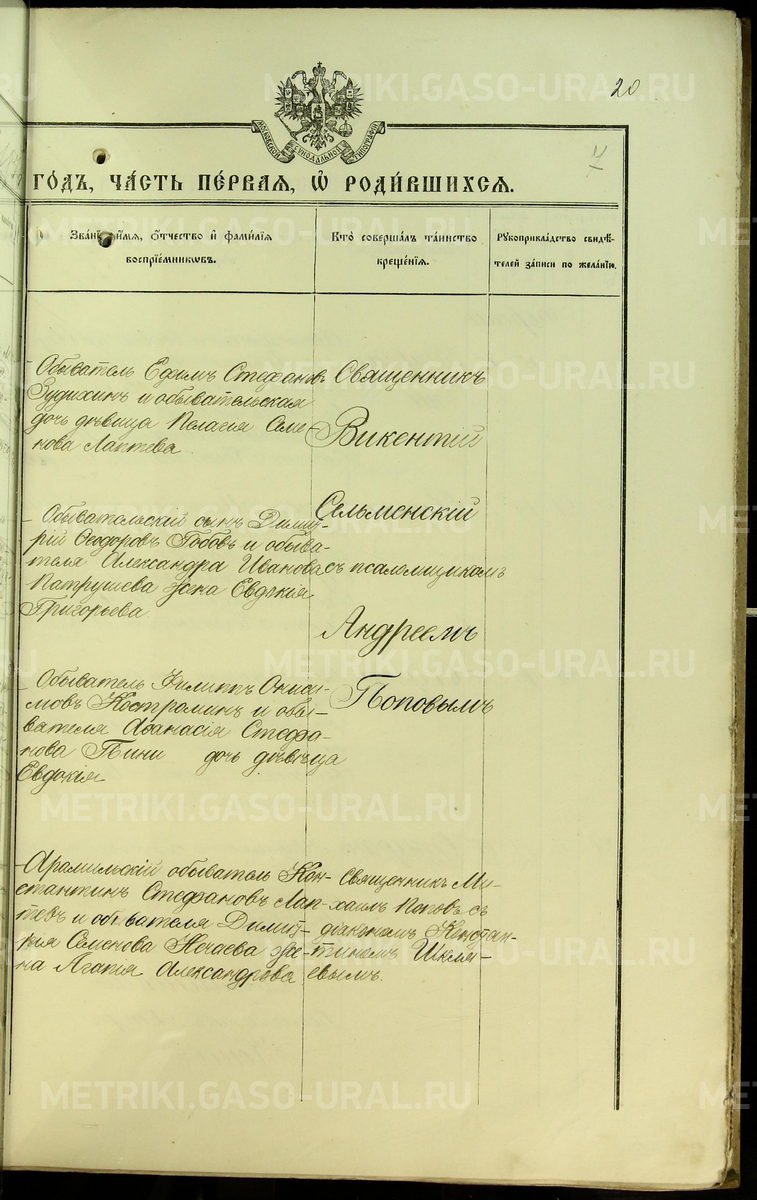 20
МОСКОВСКОЙ СѴНОДАЛЬНОЙ ТИПОГРАФІИ
4
ГО́ДЪ, ЧА́СТЬ ПЕ́РВАЯ, Ѡ҆ РОДИ́ВШИХСЯ.
Зва́нїе, и҆́мя, ѻ҆́тчество и҆ фами́лїя
воспрїе́мникѡвъ.
Кто̀ соверша́лъ та́инство
креще́нїя.
Рꙋкоприкла́дство свидѣ́-
телей за́писи по жела́нїю.
Обыватель Ефимъ Стефановъ
Зудихинъ и обывательская
дочь дѣвица Пелагія Семе-
нова Лаптева
Священникъ
Викентій
Сельменскій
съ псаломщикомъ
Андреемъ
Поповымъ
Обывательскій сынъ Димит-
рій Ѳеодоровъ Бобовъ и обыва-
теля Александра Иванова
Патрушева жена Евдокія
Григорьева
Обыватель Филиппъ Ониси-
мовъ Костроминъ и обы-
вателя Аѳанасія Стефа-
нова дочь дѣвица
Евдокія
Арамильскій обыватель Кон-
стантинъ Стефановъ Лап-
тевъ и обывателя Димит-
рія Семенова Нечаева же-
на Агапія Александрова
Священникъ Ми-
хаилъ Поповъ съ
діакономъ Констан-
тиномъ Шкля-
евымъ.
METRIKI.GASO-URAL.RU